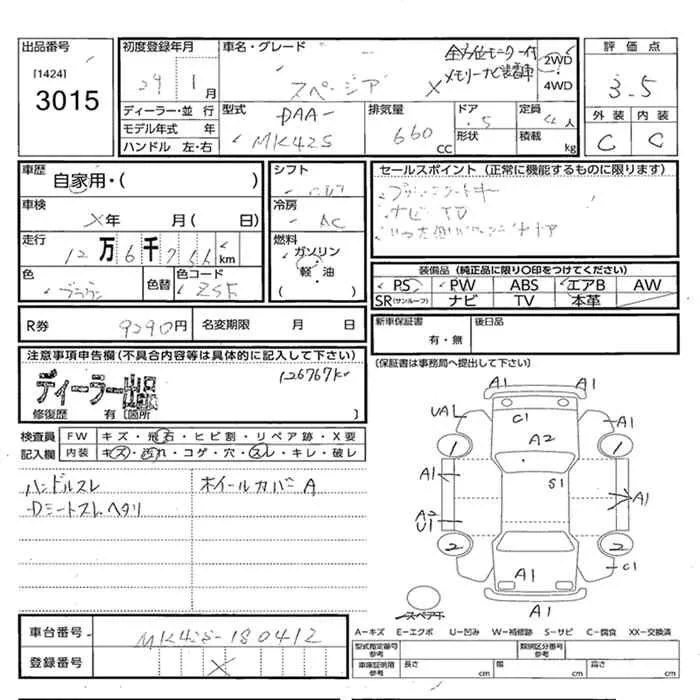 出品番号
[1424]
3015
初度登録年月
29 1月
ディーラー・並行
モデル年式 年
ハンドル 左・右
車名・グレード
スペーシア X
全方位モニター付
メモリーナビ装着車
2WD
4WD
型式
DAA-
MK42S
排気量
660 CC
ドア
5
形状
定員
4人
積載 kg
評価点
3.5
外装 内装
C C
車歴
自家用・( )
車検
X年 月( 日)
走行
12万6千766 km
色
ブラウン
色替
色コード
ZSF
シフト
冷房
AC
燃料
ガソリン
軽・油
( )
セールスポイント(正常に機能するものに限ります)
ナビ TV
装備品(純正品に限り○印をつけてください)
PS PW ABS エアB AW
SR(サンルーフ) ナビ TV 本革
R券 9290円
名変期限 月 日
新車保証書
有・無
後日品
(保証書は事務局へ提出して下さい)
注意事項申告欄(不具合内容等は具体的に記入して下さい)
ディーラー出品
126767km
修復歴 有 [箇所 ]
検査員
記入欄
FW キズ・飛石・ヒビ割・リペア跡・X要
内装 キズ・汚れ・コゲ・穴・スレ・キレ・破レ
ハンドルスレ
Dシートスレ ヘタリ
ホイールカバーA
A1 A1
UA1 C1 A1
A2
1 1
A1 S1 A1
A2
U1
2 2
C1
A1
A1
スペアT
車台番号
MK42S-180412
登録番号
X
A-キズ E-エクボ U-凹み W-補修跡 S-サビ C-腐食 XX-交換済
型式指定番号
参考
類別区分番号
参考
車庫証明用
参考
長さ cm 幅 cm 高さ cm